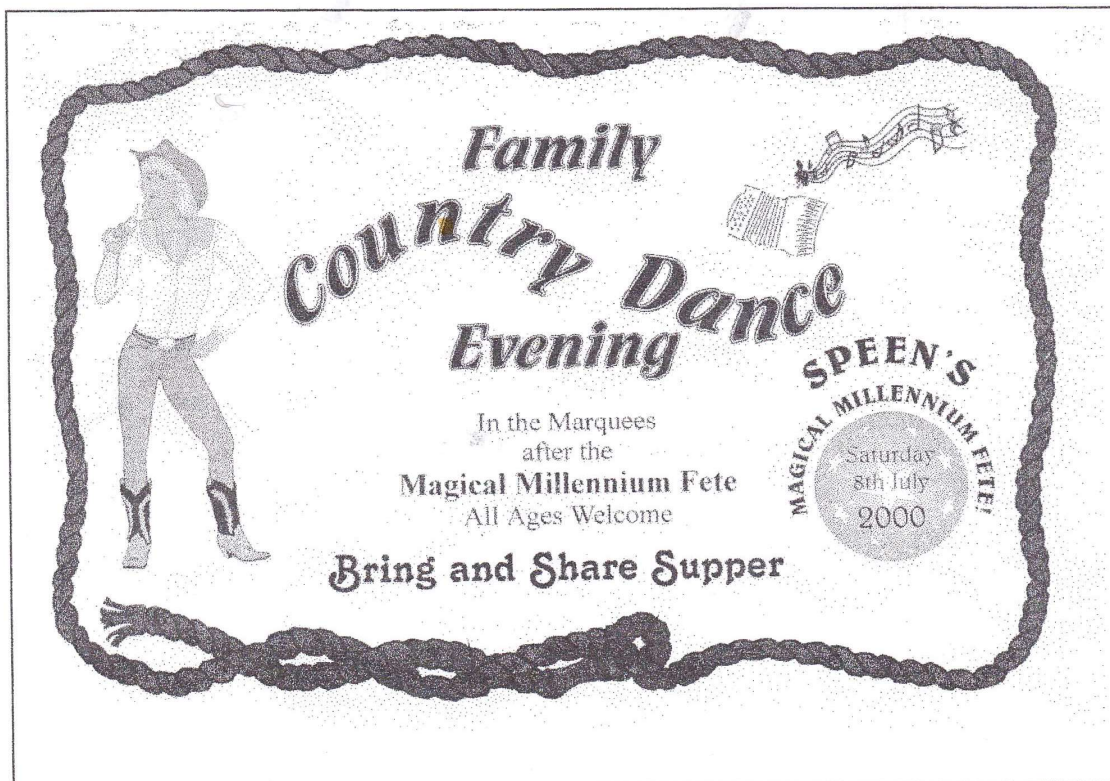 Family
Country Dance
Evening
In the Marquees
after the
Magical Millennium Fete
All Ages Welcome
Bring and Share Supper
SPEEN'S
MAGICAL MILLENNIUM FETE!
Saturday
8th July
2000